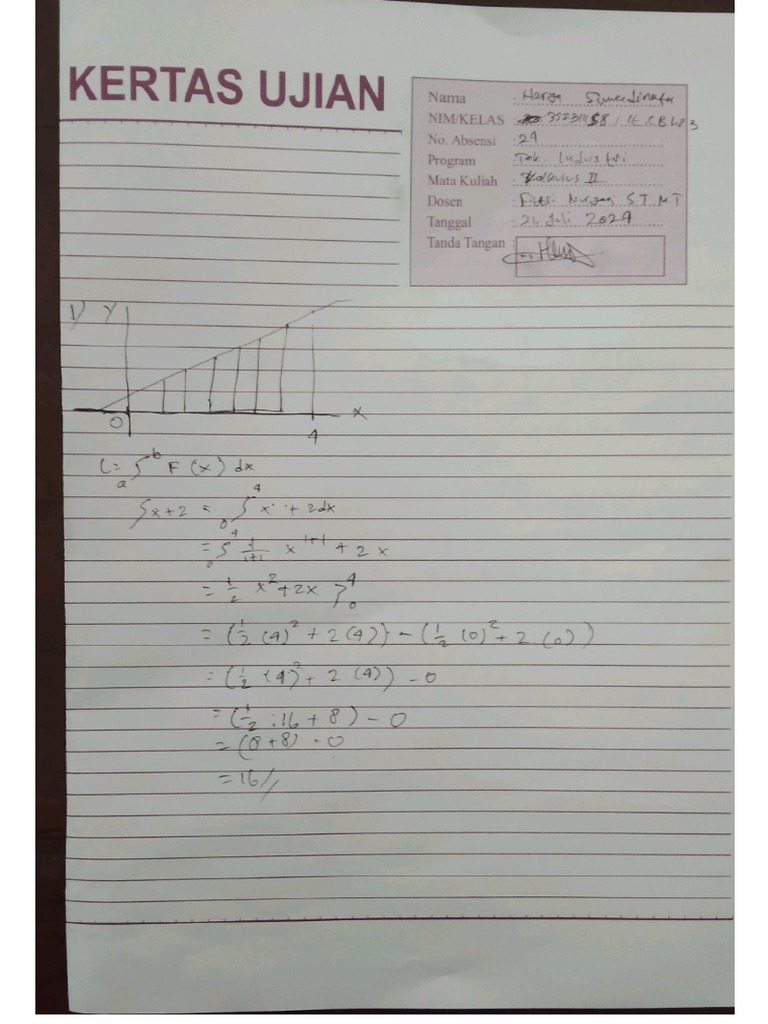 KERTAS UJIAN
Nama : Harga
NIM/KELAS
No. Absensi : 29
Program : Tek. Industri
Mata Kuliah : Kalkulus II
Dosen : Fitri S.T. M.T
Tanggal : Juli 2024
Tanda Tangan :
1) Y
0 4 X
L = ∫ₐᵇ F (x) dx
∫x+2 = ₀∫⁴ x¹ + 2dx
= ₀∫⁴ 1/1+1 x¹⁺¹ + 2x
= 1/2 x² + 2x ]₀⁴
= (1/2 (4)² + 2(4)) - (1/2 (0)² + 2.(0))
= (1/2 (4)² + 2 (4)) - 0
= (1/2 . 16 + 8) - 0
= (8+8) - 0
= 16//